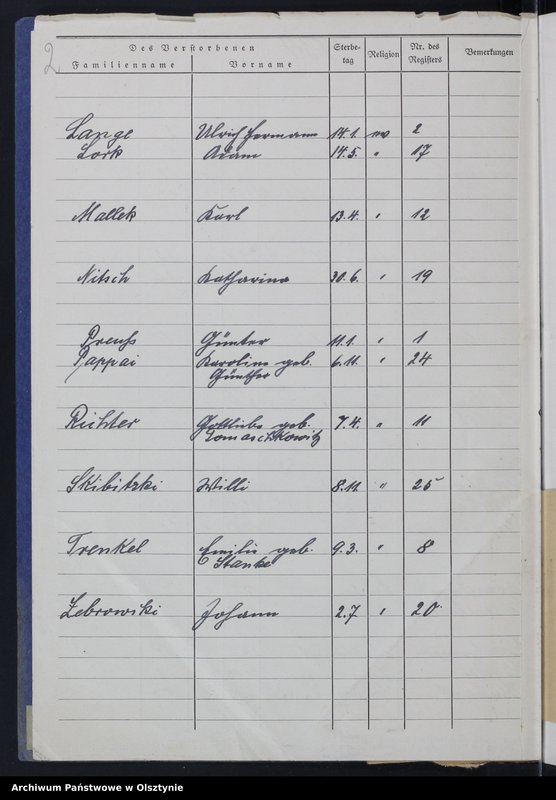 2
Des Verstorbenen
Sterbe-
tag
Religion
Nr. des
Registers
Bemerkungen
Familienname Vorname
Lange Ulrich Hermann 14.1. ev 2
Lork Adam 14.5. " 17
Mallek Karl 13.4. " 12
Nitsch Katharina 30.6. " 19
Preuß Günter 11.1. " 1
Pappai Karoline geb. 6.11. " 24
Günther
Richter Gottliebe geb. 7.4. " 11
Tomaschkowitz
Skibitzki Willi 8.11. " 25
Trenkel Emilie geb. 9.3. " 8
Stanke
Zebrowski Johann 2.7 " 20.
Archiwum Państwowe w Olsztynie